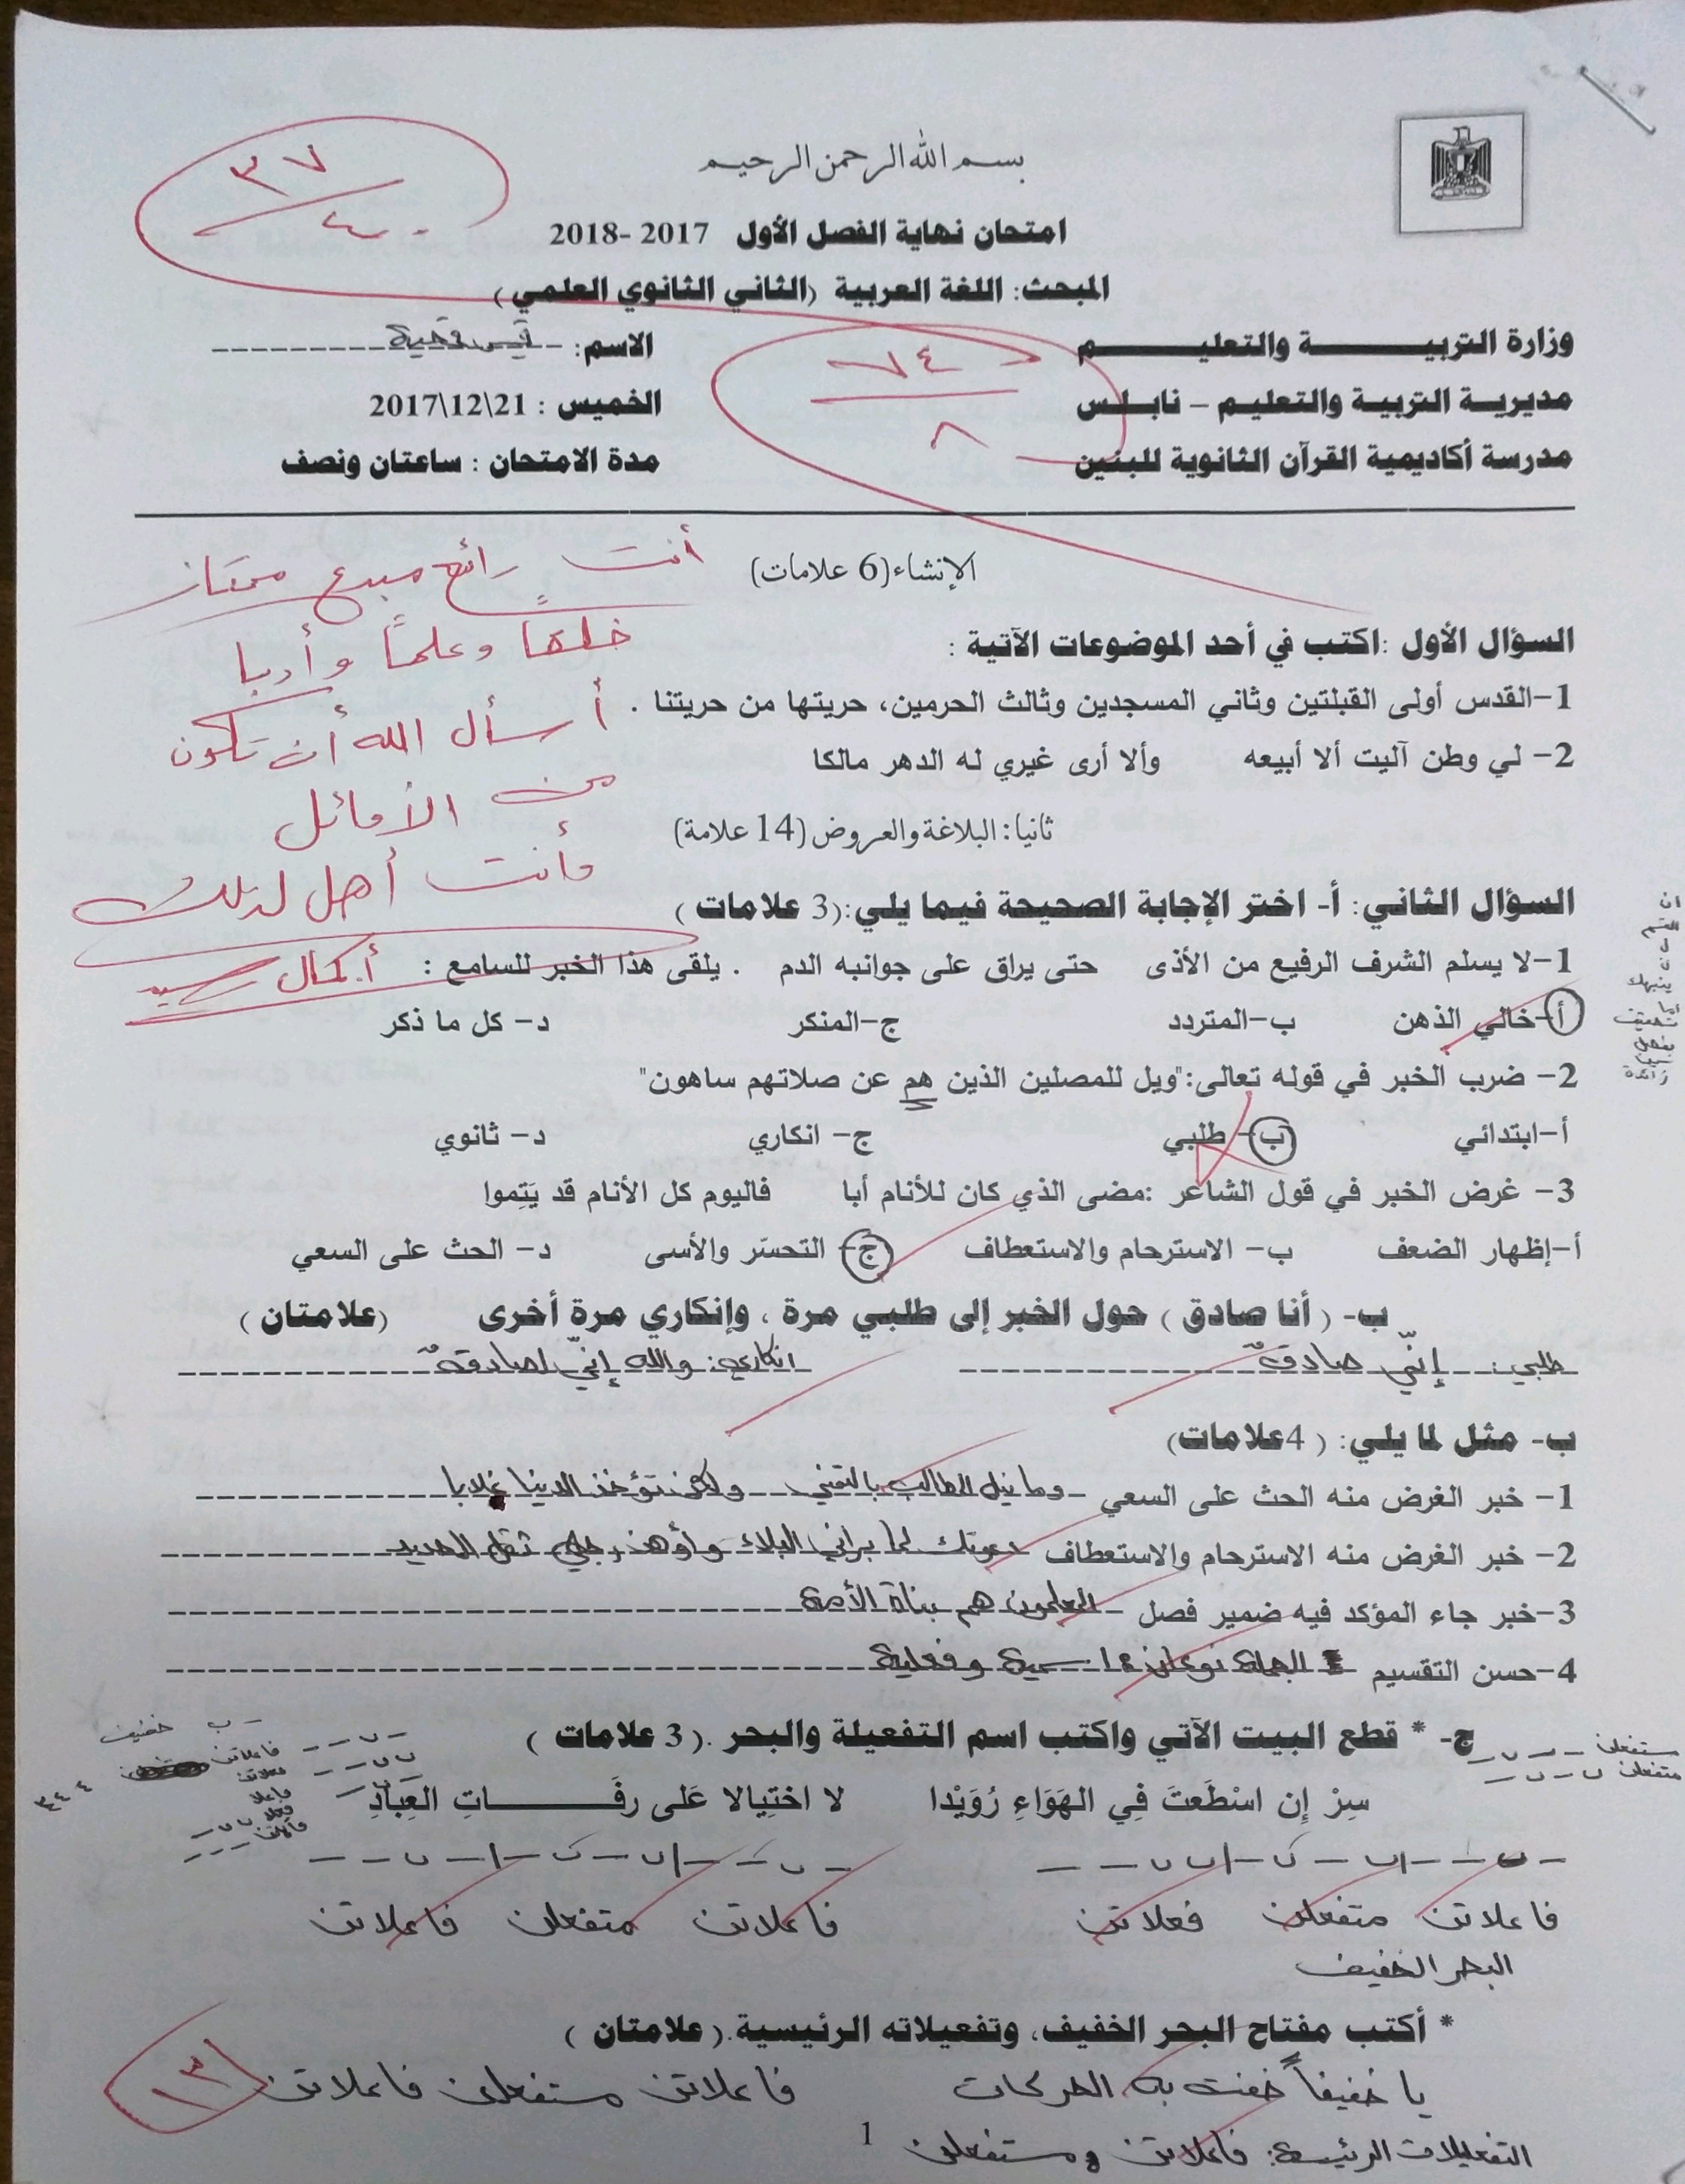 ٣٧
٤٠
بسم الله الرحمن الرحيم
امتحان نهاية الفصل الأول 2017 -2018
المبحث: اللغة العربية (الثاني الثانوي العلمي )
وزارة التربيـــــــة والتعليـــــــم
الاسم:
٧٤
٨
مديريـة التربيـة والتعليـم – نابـلـس
الخميس : 21\12\2017
مدرسة أكاديمية القرآن الثانوية للبنين
مدة الامتحان : ساعتان ونصف
الإنشاء(6 علامات)
أنت رائع مبدع ممتاز
خلقًا وعلمًا وأدبا
أسأل الله أن تكون
من الأوائل
وأنت أهل لذلك
أ. كمال
السؤال الأول :اكتب في أحد الموضوعات الآتية :
1-القدس أولى القبلتين وثاني المسجدين وثالث الحرمين، حريتها من حريتنا .
2- لي وطن آليت ألا أبيعه وألا أرى غيري له الدهر مالكا
ثانيا: البلاغة والعروض (14 علامة)
السؤال الثاني: أ- اختر الإجابة الصحيحة فيما يلي:(3 علامات )
1-لا يسلم الشرف الرفيع من الأذى حتى يراق على جوانبه الدم . يلقى هذا الخبر للسامع :
أ-خالي الذهن ب-المتردد ج-المنكر د- كل ما ذكر
2- ضرب الخبر في قوله تعالى:"ويل للمصلين الذين هم عن صلاتهم ساهون"
أ-ابتدائي ب- طلبي ج- انكاري د- ثانوي
3- غرض الخبر في قول الشاعر :مضى الذي كان للأنام أبا فاليوم كل الأنام قد يَتِموا
أ-إظهار الضعف ب- الاسترحام والاستعطاف ج- التحسّر والأسى د- الحث على السعي
ب- ( أنا صادق ) حول الخبر إلى طلبي مرة ، وإنكاري مرة أخرى (علامتان )
طلبي: إنّي صادقٌ انكاري: والله إنّي لصادقٌ
ب- مثل لما يلي: ( 4علامات)
1- خبر الغرض منه الحث على السعي وما نيل المطالب بالتمني ولكن تؤخذ الدنيا غلابا
2- خبر الغرض منه الاسترحام والاستعطاف دعوتك لما براني البلاء وأوهن رجلي ثقل الحديد
3-خبر جاء المؤكد فيه ضمير فصل المعلمون هم بناة الأمة
4-حسن التقسيم الجملة نوعان: اسمية وفعلية
ج- * قطع البيت الآتي واكتب اسم التفعيلة والبحر .(3 علامات )
مستفعلن
متفعلن
خفيف
فاعلاتن
فعلاتن
سِرْ إِن اسْطَعتَ فِي الهَوَاءِ رُوَيْدا لا اختِيالا عَلى رفَـــــــاتِ العِبَادِ
فاعلاتن متفعلن فعلاتن فاعلاتن متفعلن فاعلاتن
البحر الخفيف
* أكتب مفتاح البحر الخفيف، وتفعيلاته الرئيسية.(علامتان )
يا خفيفاً خفت به الحركات فاعلاتن مستفعلن فاعلاتن
التفعيلات الرئيسة: فاعلاتن ومستفعلن
١٣
1